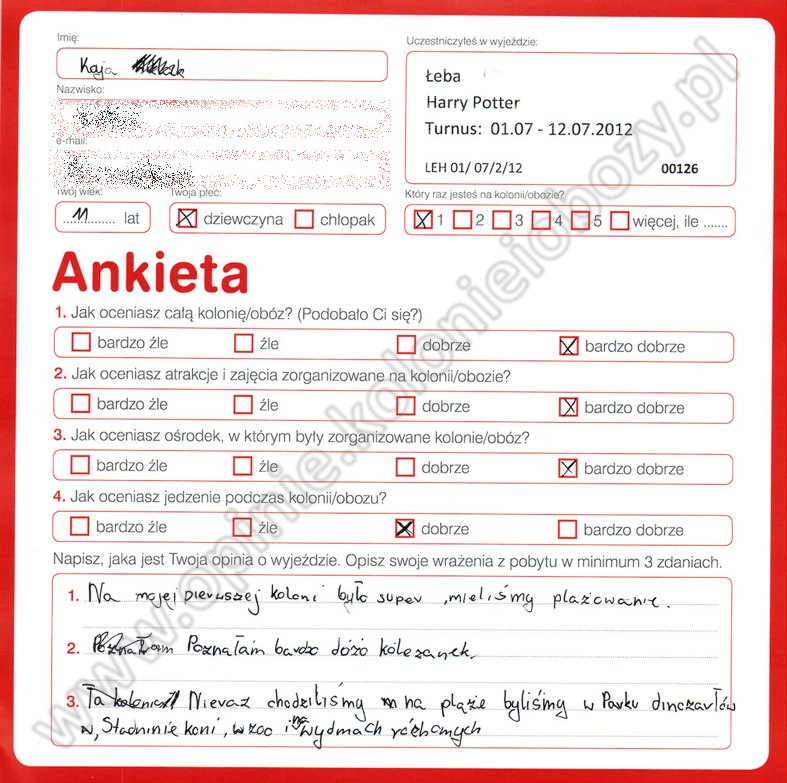 Imię:
Kaja
Nazwisko:
e-mail:
Twój wiek:
11 lat
Twoja płeć:
dziewczyna chłopak
Uczestniczyłeś w wyjeździe:
Łeba
Harry Potter
Turnus: 01.07 - 12.07.2012
LEH 01/ 07/2/12 00126
Który raz jesteś na kolonii/obozie?
1 2 3 4 5 więcej, ile .......
Ankieta
1. Jak oceniasz całą kolonię/obóz? (Podobało Ci się?)
bardzo źle źle dobrze bardzo dobrze
2. Jak oceniasz atrakcje i zajęcia zorganizowane na kolonii/obozie?
bardzo źle źle dobrze bardzo dobrze
3. Jak oceniasz ośrodek, w którym były zorganizowane kolonie/obóz?
bardzo źle źle dobrze bardzo dobrze
4. Jak oceniasz jedzenie podczas kolonii/obozu?
bardzo źle źle dobrze bardzo dobrze
Napisz, jaka jest Twoja opinia o wyjeździe. Opisz swoje wrażenia z pobytu w minimum 3 zdaniach.
1. Na mojej pierwszej koloni było super ,mieliśmy plażowanie.
2. Poznałam Poznałam bardzo dóżo koleżanek.
3. Ta Nieraz chodziliśmy na pląże byliśmy w Parku dinozarłów
w, Stadninie koni, w zoo i na wydmach róchomych
www.opinie.kolonieiobozy.pl